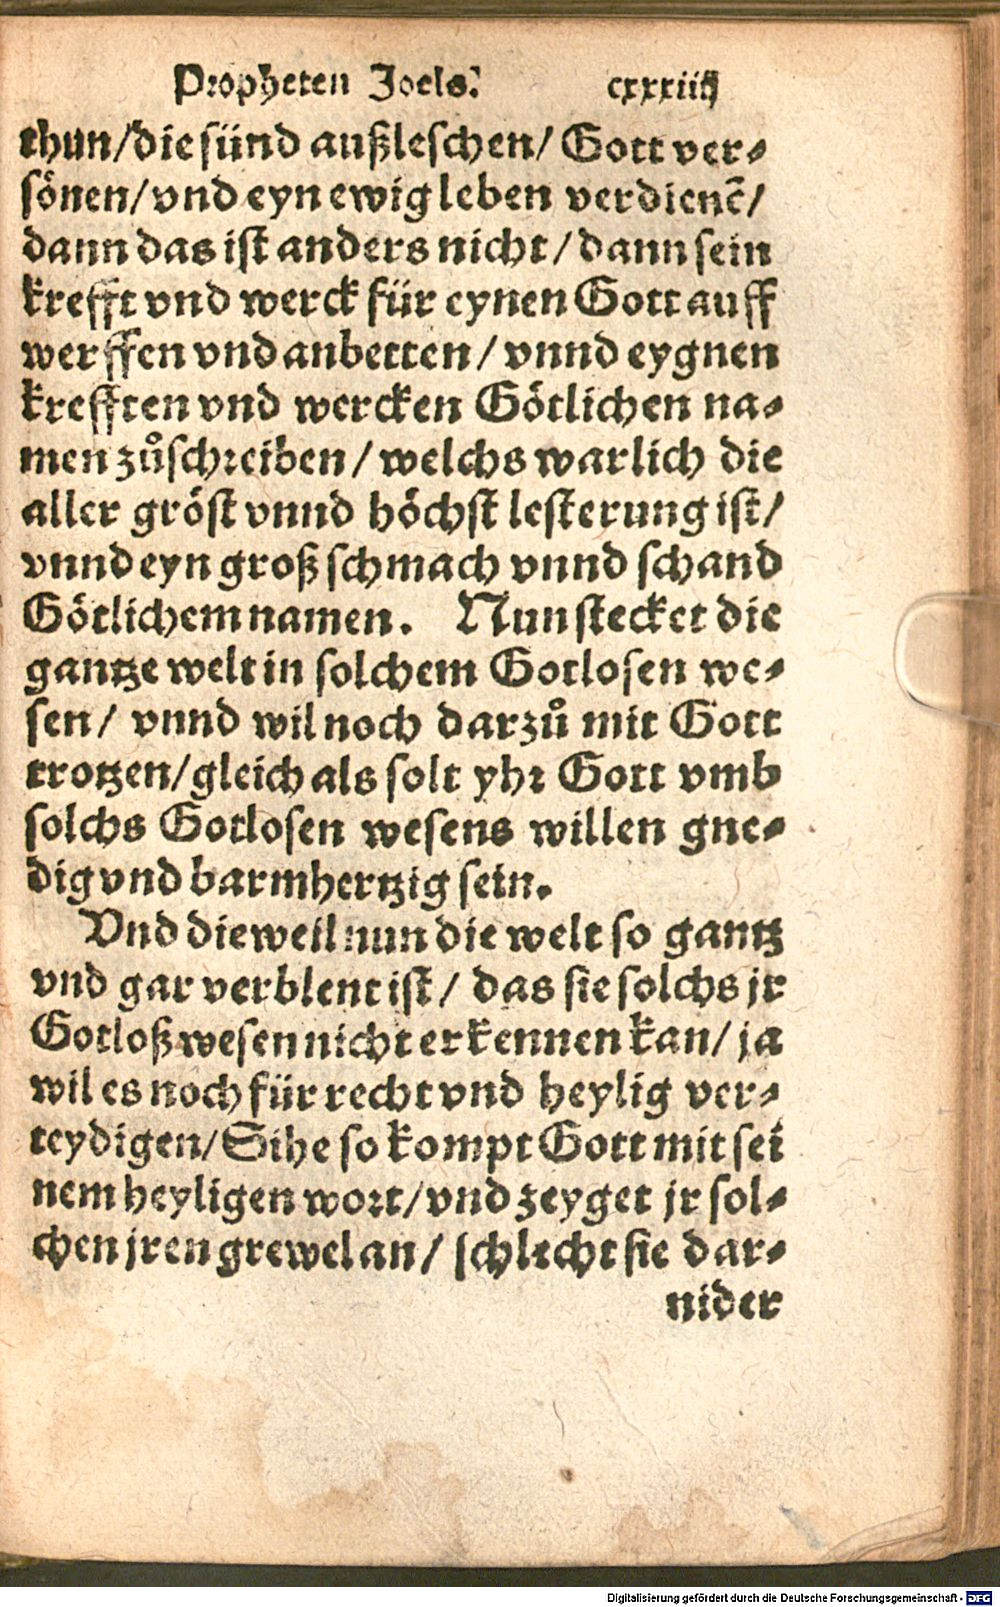 Propheten Joels. cxxxiiij
thun/die sünd außleschen/ Gott ver-
sönen/vnd eyn ewig leben verdienẽ/
dann das ist anders nicht/dann sein
krefft vnd werck für eynen Gott auff
werffen vnd anbetten/vnnd eygnen
krefften vnd wercken Götlichen na-
men zůschreiben/welchs warlich die
aller gröst vnnd höchst lesterung ist/
vnnd eyn groß schmach vnnd schand
Götlichem namen. Nun stecket die
gantze welt in solchem Gotlosen we-
sen/ vnnd wil noch darzů mit Gott
trotzen/gleich als solt yhr Gott vmb
solchs Gotlosen wesens willen gne-
dig vnd barmhertzig sein.
Vnd dieweil nun die welt so gantz
vnd gar verblent ist/ das sie solchs jr
Gotloß wesen nicht erkennen kan/ja
wil es noch für recht vnd heylig ver-
teydigen/Sihe so kompt Gott mit sei
nem heyligen wort/vnd zeyget jr sol-
chen jren grewel an/ schlecht sie dar-
nider
Digitalisierung gefördert durch die Deutsche Forschungsgemeinschaft - DFG